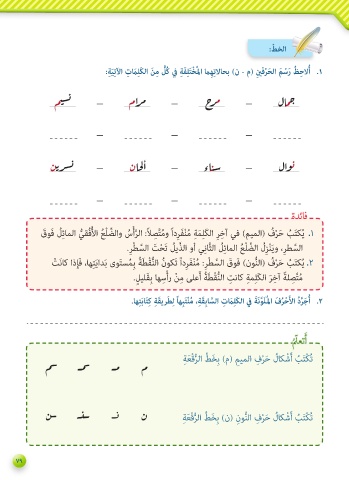 الخطّ:
١. أُلاحِظُ رَسْمَ الحَرْفَينِ (م - ن) بِحالاتِهِما المُخْتَلِفَةِ فِي كُلٍّ مِنَ الكَلِمَاتِ الآتِيَةِ:
جمال – مرح – مرام – نسيم
– – –
نوال – سناء – ألحان – نسرين
– – –
فائدة
١. يُكتَبُ حَرْفُ (الميمِ) في آخِرِ الكَلِمَةِ مُنْفَرِداً ومُتَّصِلاً: الرَّأْسُ والضِّلْعُ الأُفُقِيُّ المائِلُ فَوقَ
السَّطْرِ، ويَنْزِلُ الضِّلْعُ المائِلُ الثَّانِي أَو الذَّيلُ تَحْتَ السَّطْرِ.
٢. يُكْتَبُ حَرْفُ (النُّون) فَوقَ السَّطْرِ: مُنْفَرِداً تَكونُ النُّقطَةُ بِمُستَوى بَدايَتِها، فَإِذا كانَتْ
مُتَّصِلَةً آخِرَ الكَلِمَةِ كانَتِ النُّقطَةُ أَعلى مِنْ رأْسِها بِقَليلٍ.
٢. أُجَرِّدُ الأَحْرُفَ المُلَوَّنَةَ في الكَلِماتِ السَّابِقَةِ، مُنْتَبِهاً لِطَريقَةِ كِتابَتِها.
أَتعلّم
تُكْتَبُ أَشْكالُ حَرْفِ الميمِ (م) بِخَطِّ الرُّقْعَةِ م مـ ـمـ ـم
تُكْتَبُ أَشْكالُ حَرْفِ النُّونِ (ن) بِخَطِّ الرُّقْعَةِ ن نـ ـنـ ـن
٧٩